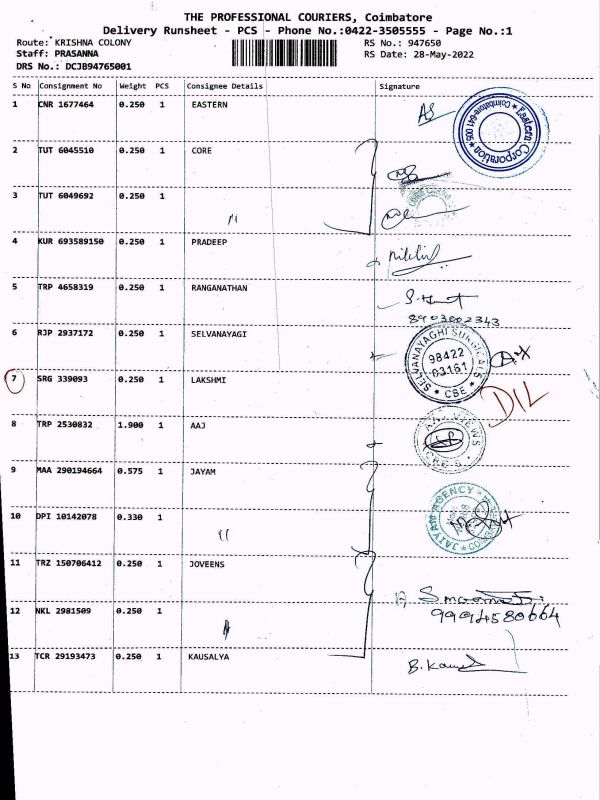 THE PROFESSIONAL COURIERS, Coimbatore
Delivery Runsheet - PCS - Phone No.:0422-3505555 - Page No.:1
Route: KRISHNA COLONY RS No.: 947650
Staff: PRASANNA RS Date: 28-May-2022
DRS No.: DCJB94765001
S No Consignment No Weight PCS Consignee Details Signature
1 CNR 1677464 0.250 1 EASTERN
Eastern Corporation
Coimbatore-641 005
2 TUT 6045510 0.250 1 CORE
3 TUT 6049692 0.250 1
4 KUR 693589150 0.250 1 PRADEEP
5 TRP 4658319 0.250 1 RANGANATHAN
8903002343
6 RJP 2937172 0.250 1 SELVANAYAGI
SELVANAYAGHI SURGICALS
98422
03161
CBE
7 SRG 339093 0.250 1 LAKSHMI
D/L
8 TRP 2530832 1.900 1 AAJ
9 MAA 290194664 0.575 1 JAYAM
AGENCY
10 DPI 10142078 0.330 1
11 TRZ 150706412 0.250 1 JOVEENS
9994580664
12 NKL 2981509 0.250 1
13 TCR 29193473 0.250 1 KAUSALYA